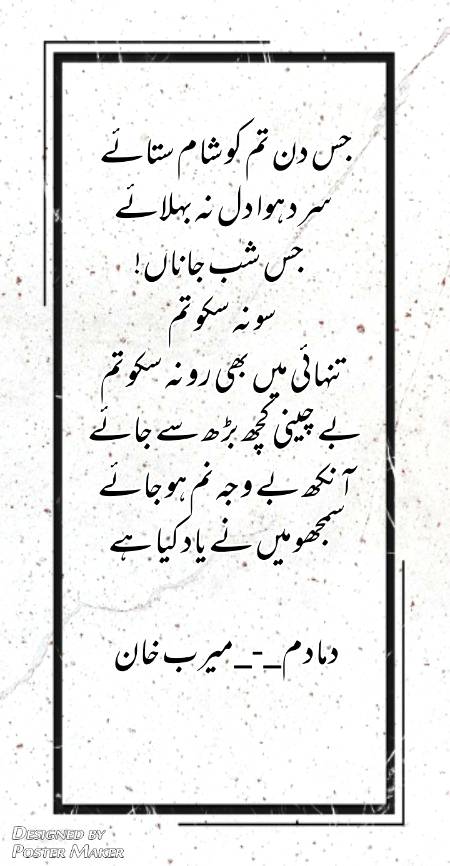 جس دن تم کو شام ستائے
سرد ہوا دل نہ بہلائے
جس شب جاناں!
سو نہ سکو تم
تنہائی میں بھی رو نہ سکو تم
بے چینی کچھ بڑھ سے جائے
آنکھ بے وجہ نم ہو جائے
سمجھو میں نے یاد کیا ہے
دمادم_-_میرب خان
Designed by
Poster Maker